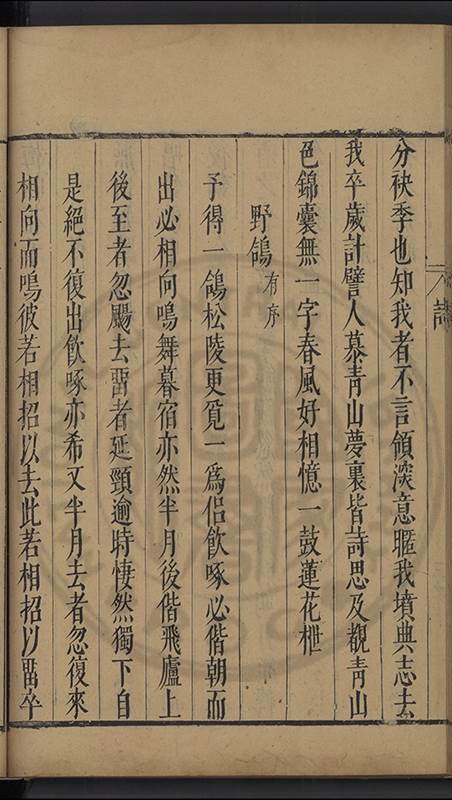 分袂季也知我者不言領淡意贐我墳典志去
我卒歲計譬人慕青山夢裏皆詩思及覩青山
色錦囊無一字春風好相憶一鼓蓮花枻
野鴿有序
予得一鴿松陵更覓一為侶飲啄必偕朝而
出必相向鳴舞暮宿亦然半月後偕飛廬上
後至者忽颺去畱者延頸逾時悽然獨下自
是絕不復出飲啄亦希又半月去者忽復來
相向而鳴彼若相招以去此若相招以畱卒